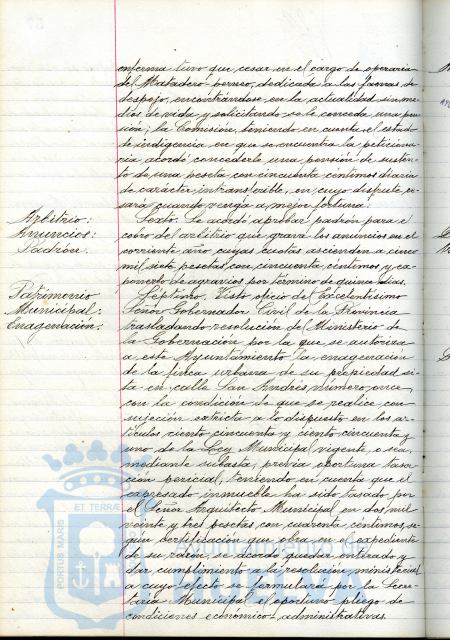 enferma tuvo que cesar en el cargo de operaria
del Matadero porcino, dedicada a las faenas de
despojo, encontrándose en la actualidad sin me-
dios de vida y solicitando se le conceda una pen-
sión; la Comisión, teniendo en cuenta el estado
de indigencia en que se encuentra la peticiona-
ria acordó concederle una pensión de susten-
to de una peseta con cincuenta céntimos diaria
de carácter intransferible, en cuyo disfrute ce-
sará cuando venga a mejor fortuna.
Arbitrio:
Anuncios:
Padrón.
Sexto. Se acordó aprobar padrón para el
cobro del arbitrio que grava los anuncios en el
corriente año cuyas cuotas ascienden a cinco
mil siete pesetas con cincuenta céntimos y ex-
ponerlo de agravios por término de quince días.
Patrimonio
Municipal:
Enagenación.
Séptimo. Visto oficio de Excelentísimo
Señor Gobernador Civil de la Provincia
trasladando resolución del Ministerio de
la Gobernación por la que se autoriza
a este Ayuntamiento la enagenación
de la finca urbana de su propiedad si-
ta en calle San Andrés, número once,
con la condición de que se realice con
sujeción extricta a lo dispuesto en los ar-
tículos ciento cincuenta y ciento cincuenta y
uno de la Ley Municipal vigente, o sea,
mediante subasta, previa oportuna tasa-
ción pericial, teniendo en cuenta que el
expresado inmueble ha sido tasado por
el Señor Arquitecto Municipal en dos mil
veinte y tres pesetas con cuarenta céntimos, se-
gún certificación que obra en el expediente
de su razón, se acordó quedar enterado y
dar cumplimiento a la resolución ministerial
a cuyo efecto se formulará por la Secre-
taría Municipal el oportuno pliego de
condiciones económico-administrativas.
PORTUS MARIS
ET TERRÆ
HUELVA